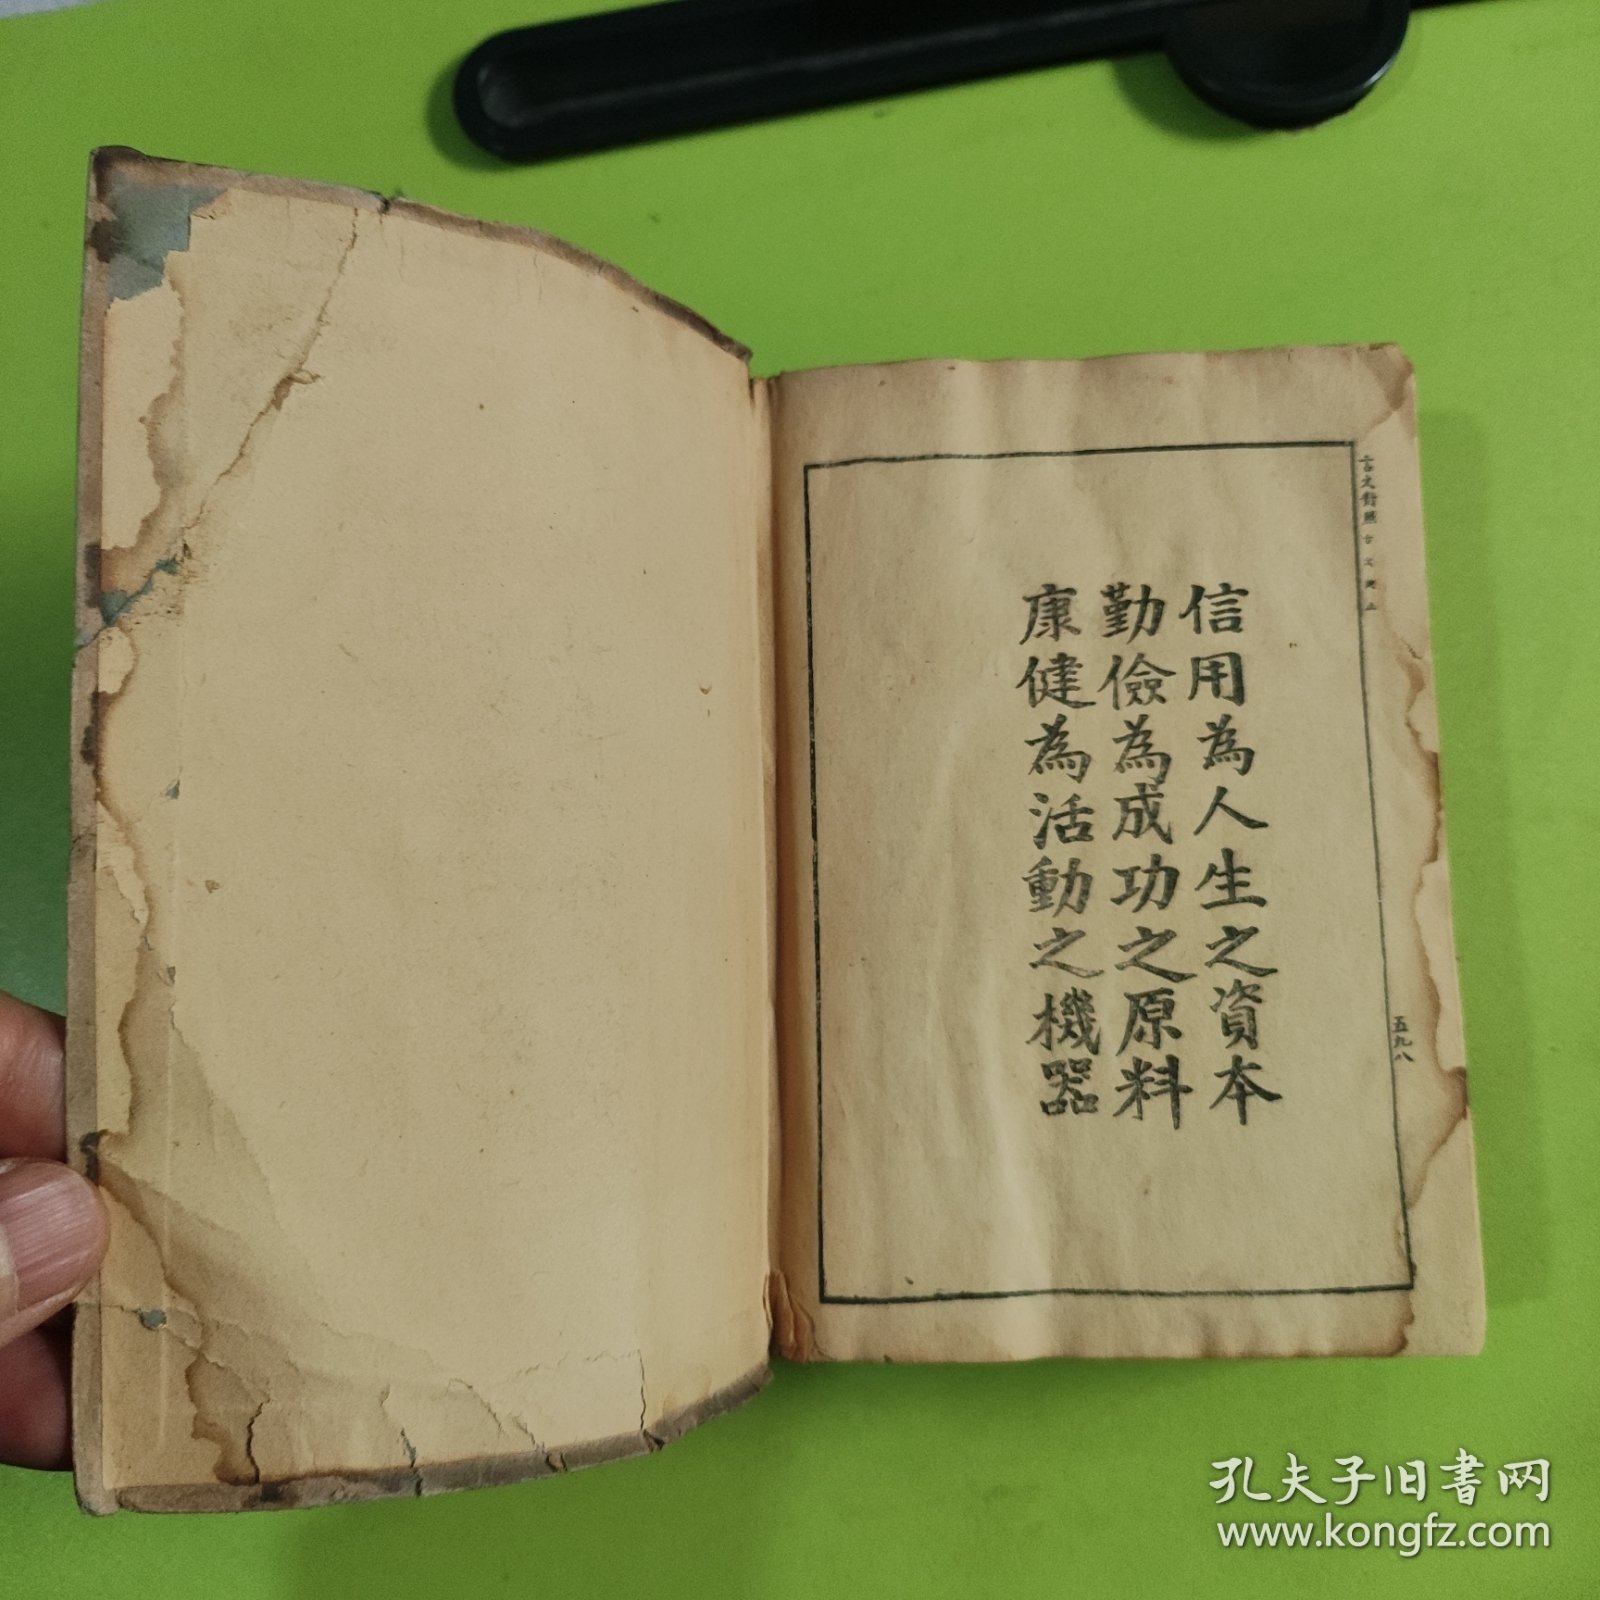 言文對照
信用為人生之資本
勤儉為成功之原料
康健為活動之機器
五九八
孔夫子旧書网
www.kongfz.com